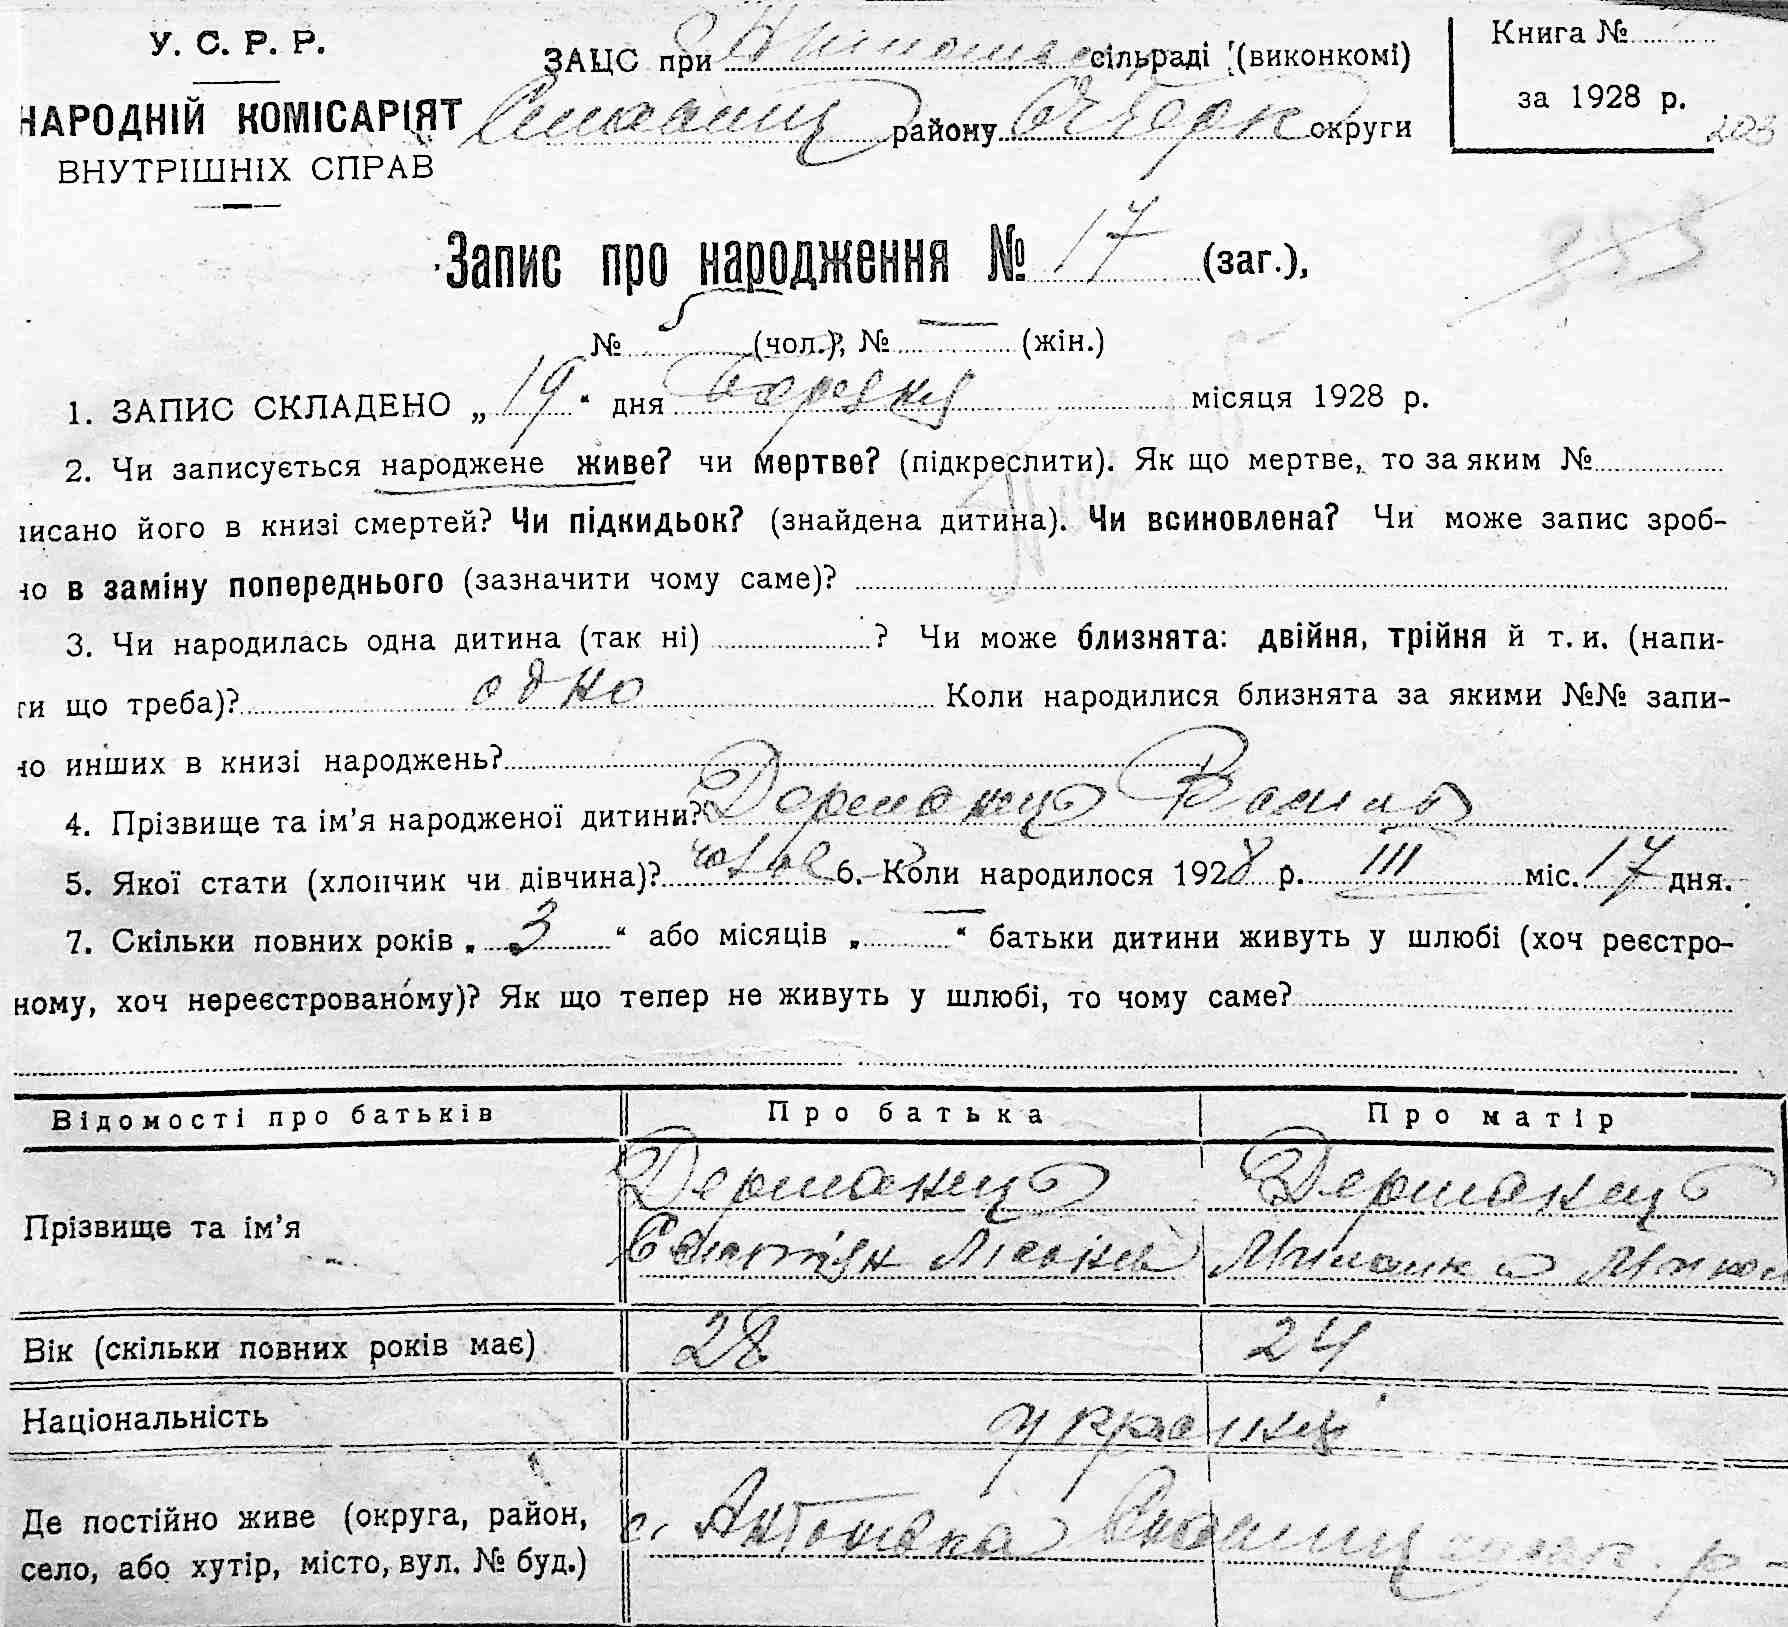 У. С. Р. Р.
НАРОДНІЙ КОМІСАРІЯТ
ВНУТРІШНІХ СПРАВ
ЗАЦС при сільраді (виконкомі)
району округи
Книга №
за 1928 р.
203
Запис про народження № 17 (заг.),
№ 5 (чол.), № — (жін.)
1. ЗАПИС СКЛАДЕНО „ 19 “ дня березня місяця 1928 р.
2. Чи записується народжене живе? чи мертве? (підкреслити). Як що мертве, то за яким №
писано його в книзі смертей? Чи підкидьок? (знайдена дитина). Чи всиновлена? Чи може запис зроб-
но в заміну попереднього (зазначити чому саме)?
3. Чи народилась одна дитина (так ні) ? Чи може близнята: двійня, трійня й т. и. (напи-
ти що треба)? одно Коли народилися близнята за якими №№ запи-
но инших в книзі народжень?
4. Прізвище та ім’я народженої дитини? Дерманец
5. Якої стати (хлопчик чи дівчина)? 6. Коли народилося 1928 р. III міс. 17 дня.
7. Скільки повних років „ 3 “ або місяців „ — “ батьки дитини живуть у шлюбі (хоч реєстро-
ному, хоч нереєстрованому)? Як що тепер не живуть у шлюбі, то чому саме?
Відомості про батьків Про батька Про матір
Прізвище та ім’я Дерманец Дерманец
Вік (скільки повних років має) 28 24
Національність українці
Де постійно живе (округа, район,
село, або хутір, місто, вул. № буд.) с. Антонівка